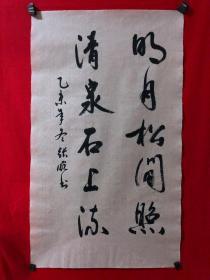 明月松间照
清泉石上流
乙未年冬张顺书